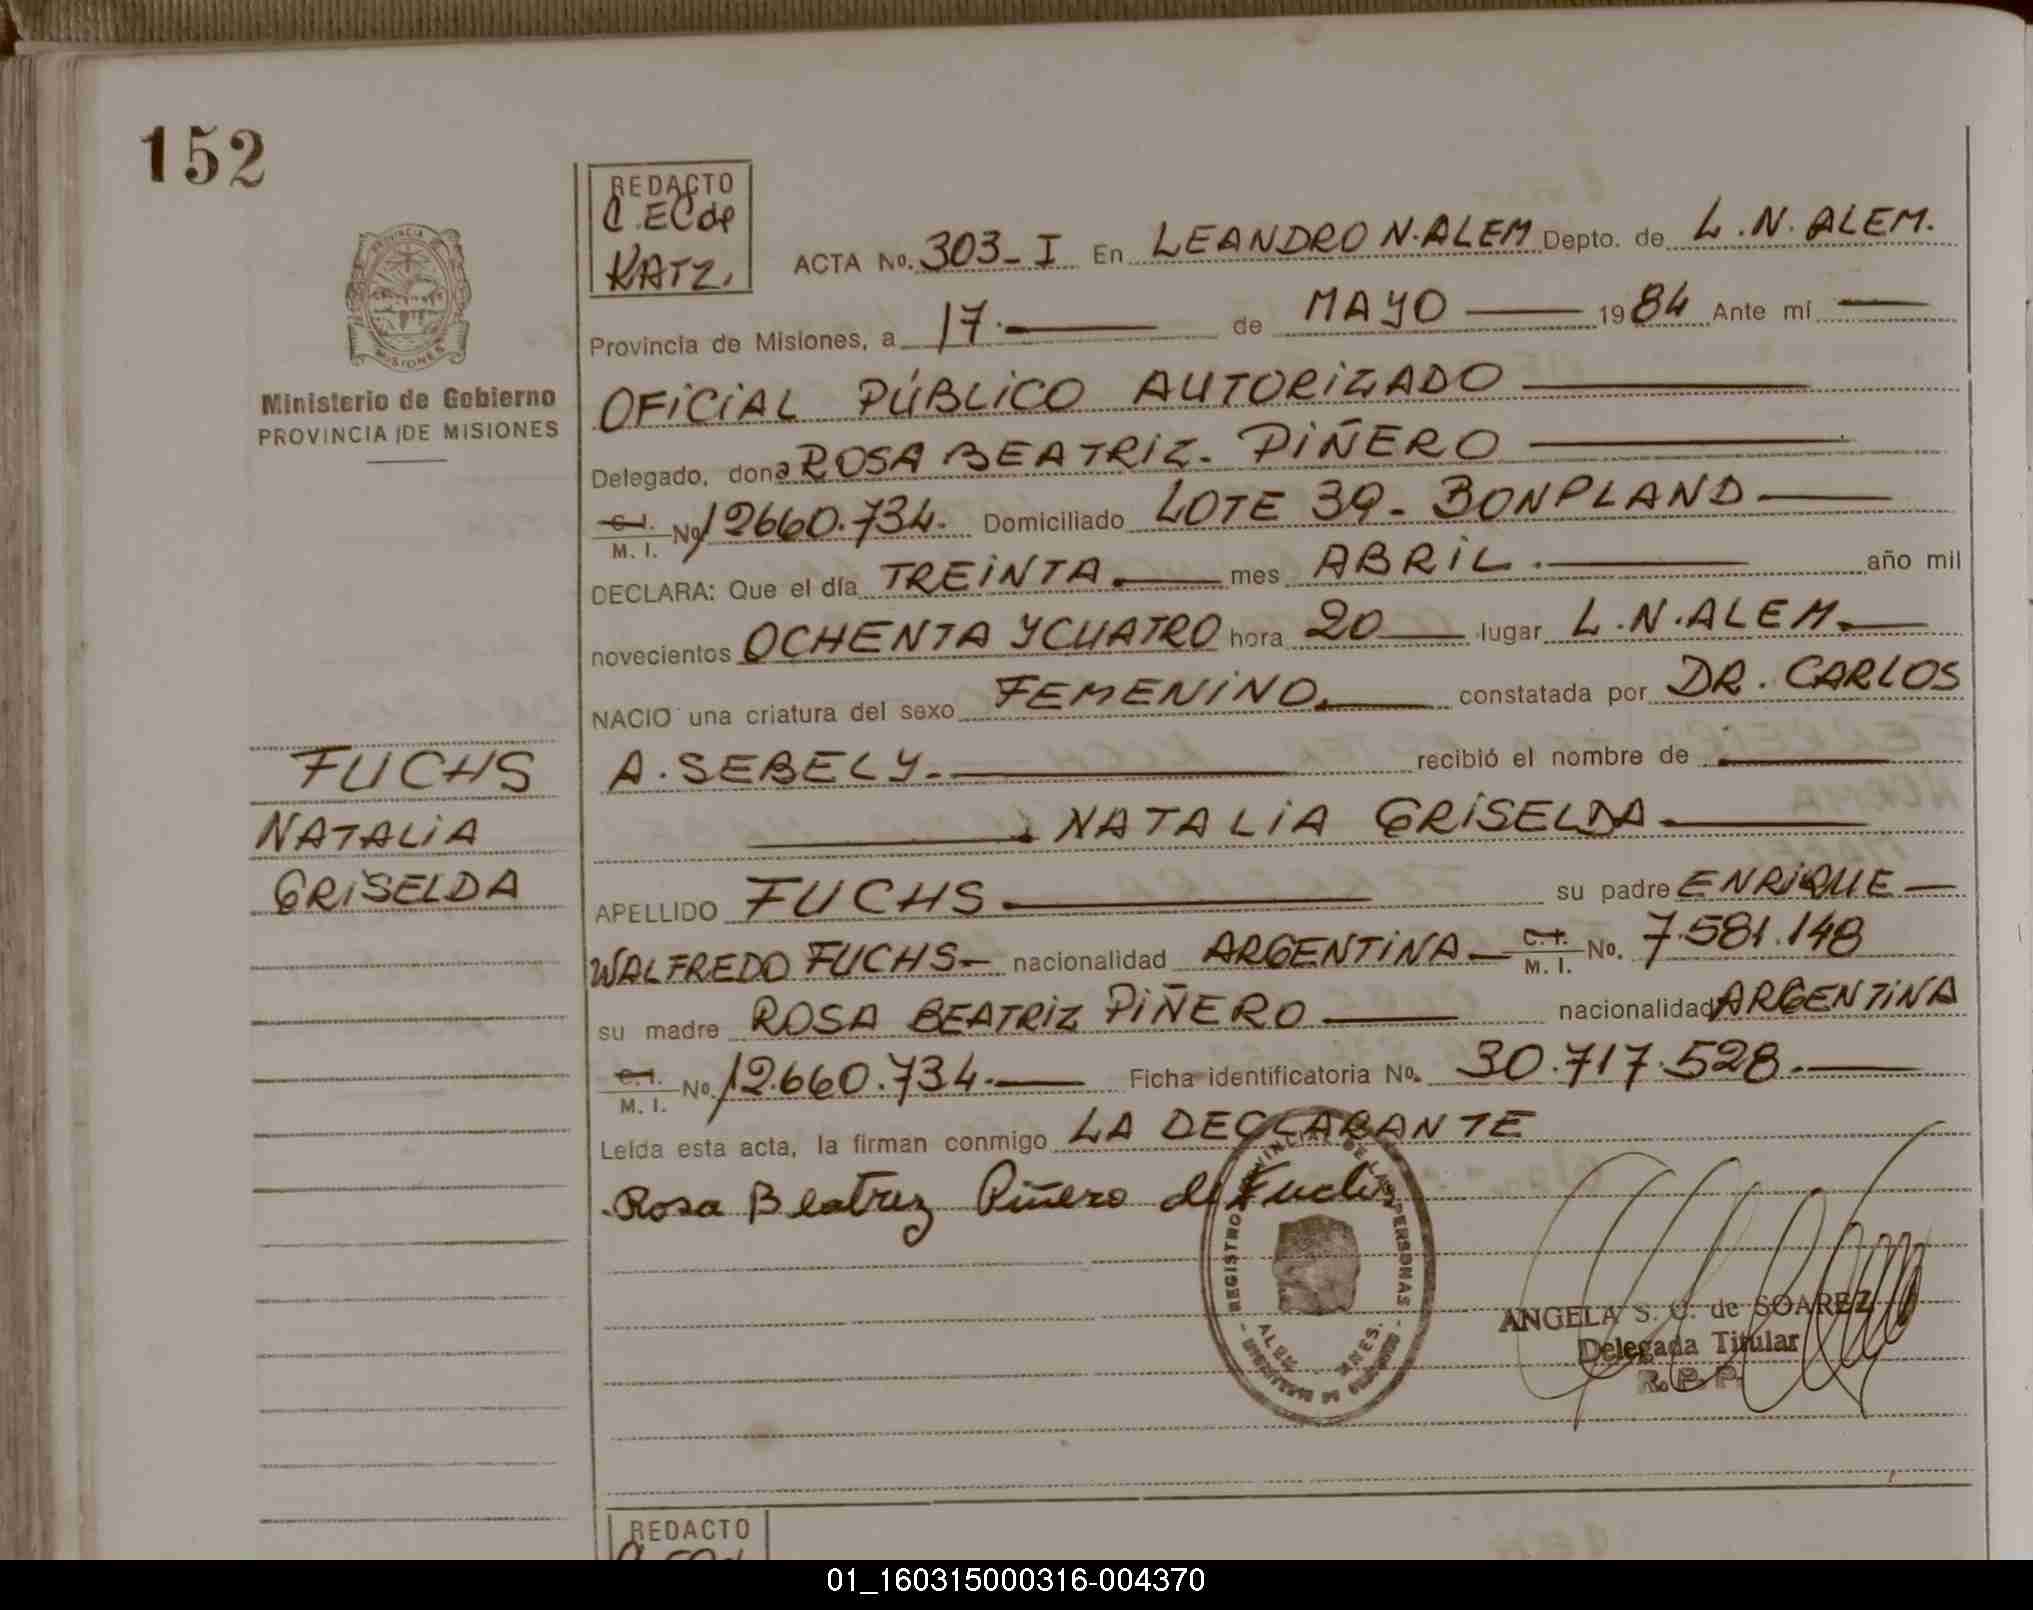 152
REDACTO
C. EC de
KATZ.
ACTA No. 303-I En LEANDRO N. ALEM Depto. de L. N. ALEM.
Provincia de Misiones, a 17. de MAYO 1984 Ante mí
Ministerio de Gobierno
PROVINCIA DE MISIONES
OFICIAL PÚBLICO AUTORIZADO
Delegado, dona ROSA BEATRIZ. PIÑERO
C. I. M. I. No 12660.734. Domiciliado LOTE 39 - BONPLAND
DECLARA: Que el día TREINTA. mes ABRIL. año mil
novecientos OCHENTA Y CUATRO hora 20 lugar L. N. ALEM.
NACIO una criatura del sexo FEMENINO. constatada por DR. CARLOS
A. SEBELY. recibió el nombre de
NATALIA GRISELDA
FUCHS
NATALIA
GRISELDA
APELLIDO FUCHS su padre ENRIQUE
WALFREDO FUCHS nacionalidad ARGENTINA C. I. M. I. No. 7.581.148
su madre ROSA BEATRIZ PIÑERO nacionalidad ARGENTINA
C. I. M. I. No. 12.660.734. Ficha identificatoria No. 30.717.528.
Leída esta acta, la firman conmigo LA DECLARANTE
Rosa Beatriz Piñero de Fuchs
REGISTRO PROVINCIAL DE LAS PERSONAS
ALEM MNES.
ANGELA S. C. de SOAREZ
Delegada Titular
R. P. P.
REDACTO
01_160315000316-004370